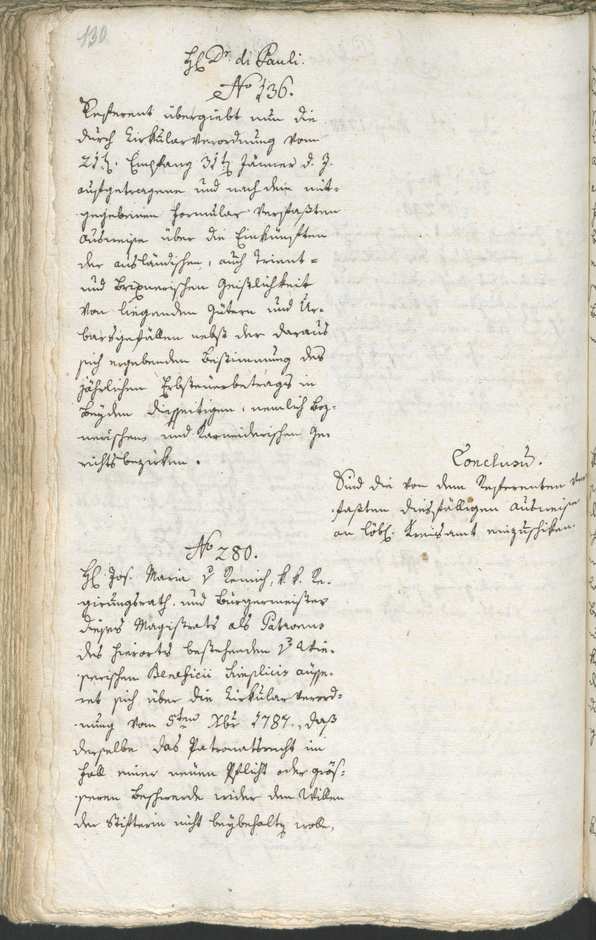 130
H: Dr. di Pauli.
No 136.
Referent übergiebt nun die
durch Cirkularverordnung vom
21t. Empfang 31t. Jänner d. J.
aufgetragene und nach dem mit-
gegebenen Formular verfaßten
Ausweise über die Einkünften
der ausländischen, auch Trient-
und Brixnerischen Geistlichkeit
von liegenden Gütern und Ur-
barsgefällen nebst der daraus
sich ergebenden Bestimmung des
jährlichen Erbsteuerbetrags in
beyden diesseitigen, nemlich Boz-
nerischen und Karneiderischen Ge-
richtsbezirken.
Conclusum.
Sind die von dem Referenten ver-
faßten diesfälligen Ausweise
an löbl. Kreisamt einzuschiken.
No 280.
H: Jos. Maria v Remich, k. k. Re-
gierungsrath und Bürgermeister
dieses Magistrats als Patronus
des hierorts bestehenden v
Beneficii Simplicis äusse-
ret sich über die Cirkularverord-
nung vom 5ten Xbr 1787, daß
derselbe das Patronatsrecht im
Fall einer neuen Pflicht oder grös-
seren Beschwerde wider den Willen
der Stifterin nicht beybehalten wolle,